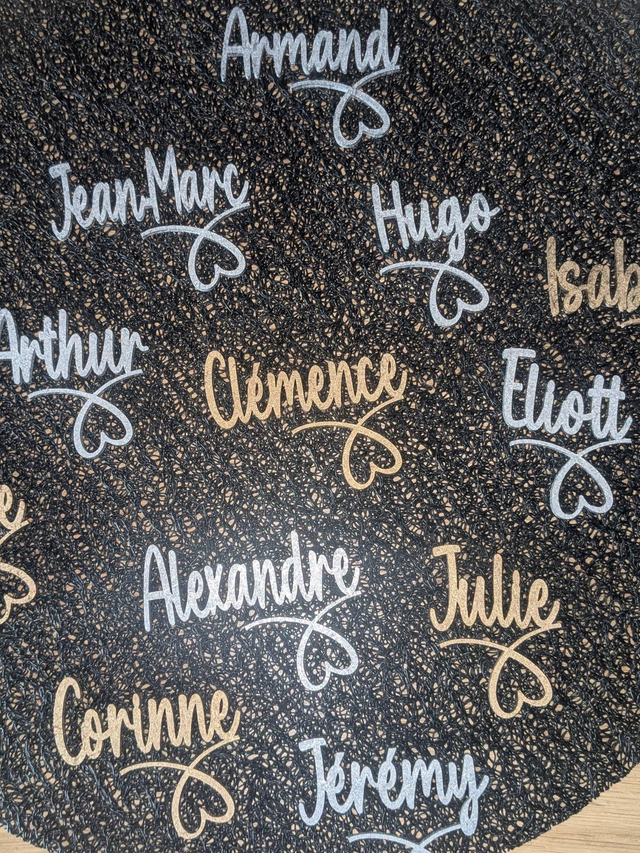 Armand
Jean-Marc
Hugo
Isab
Arthur
Clémence
Eliott
e
Alexandre
Julie
Corinne
Jérémy